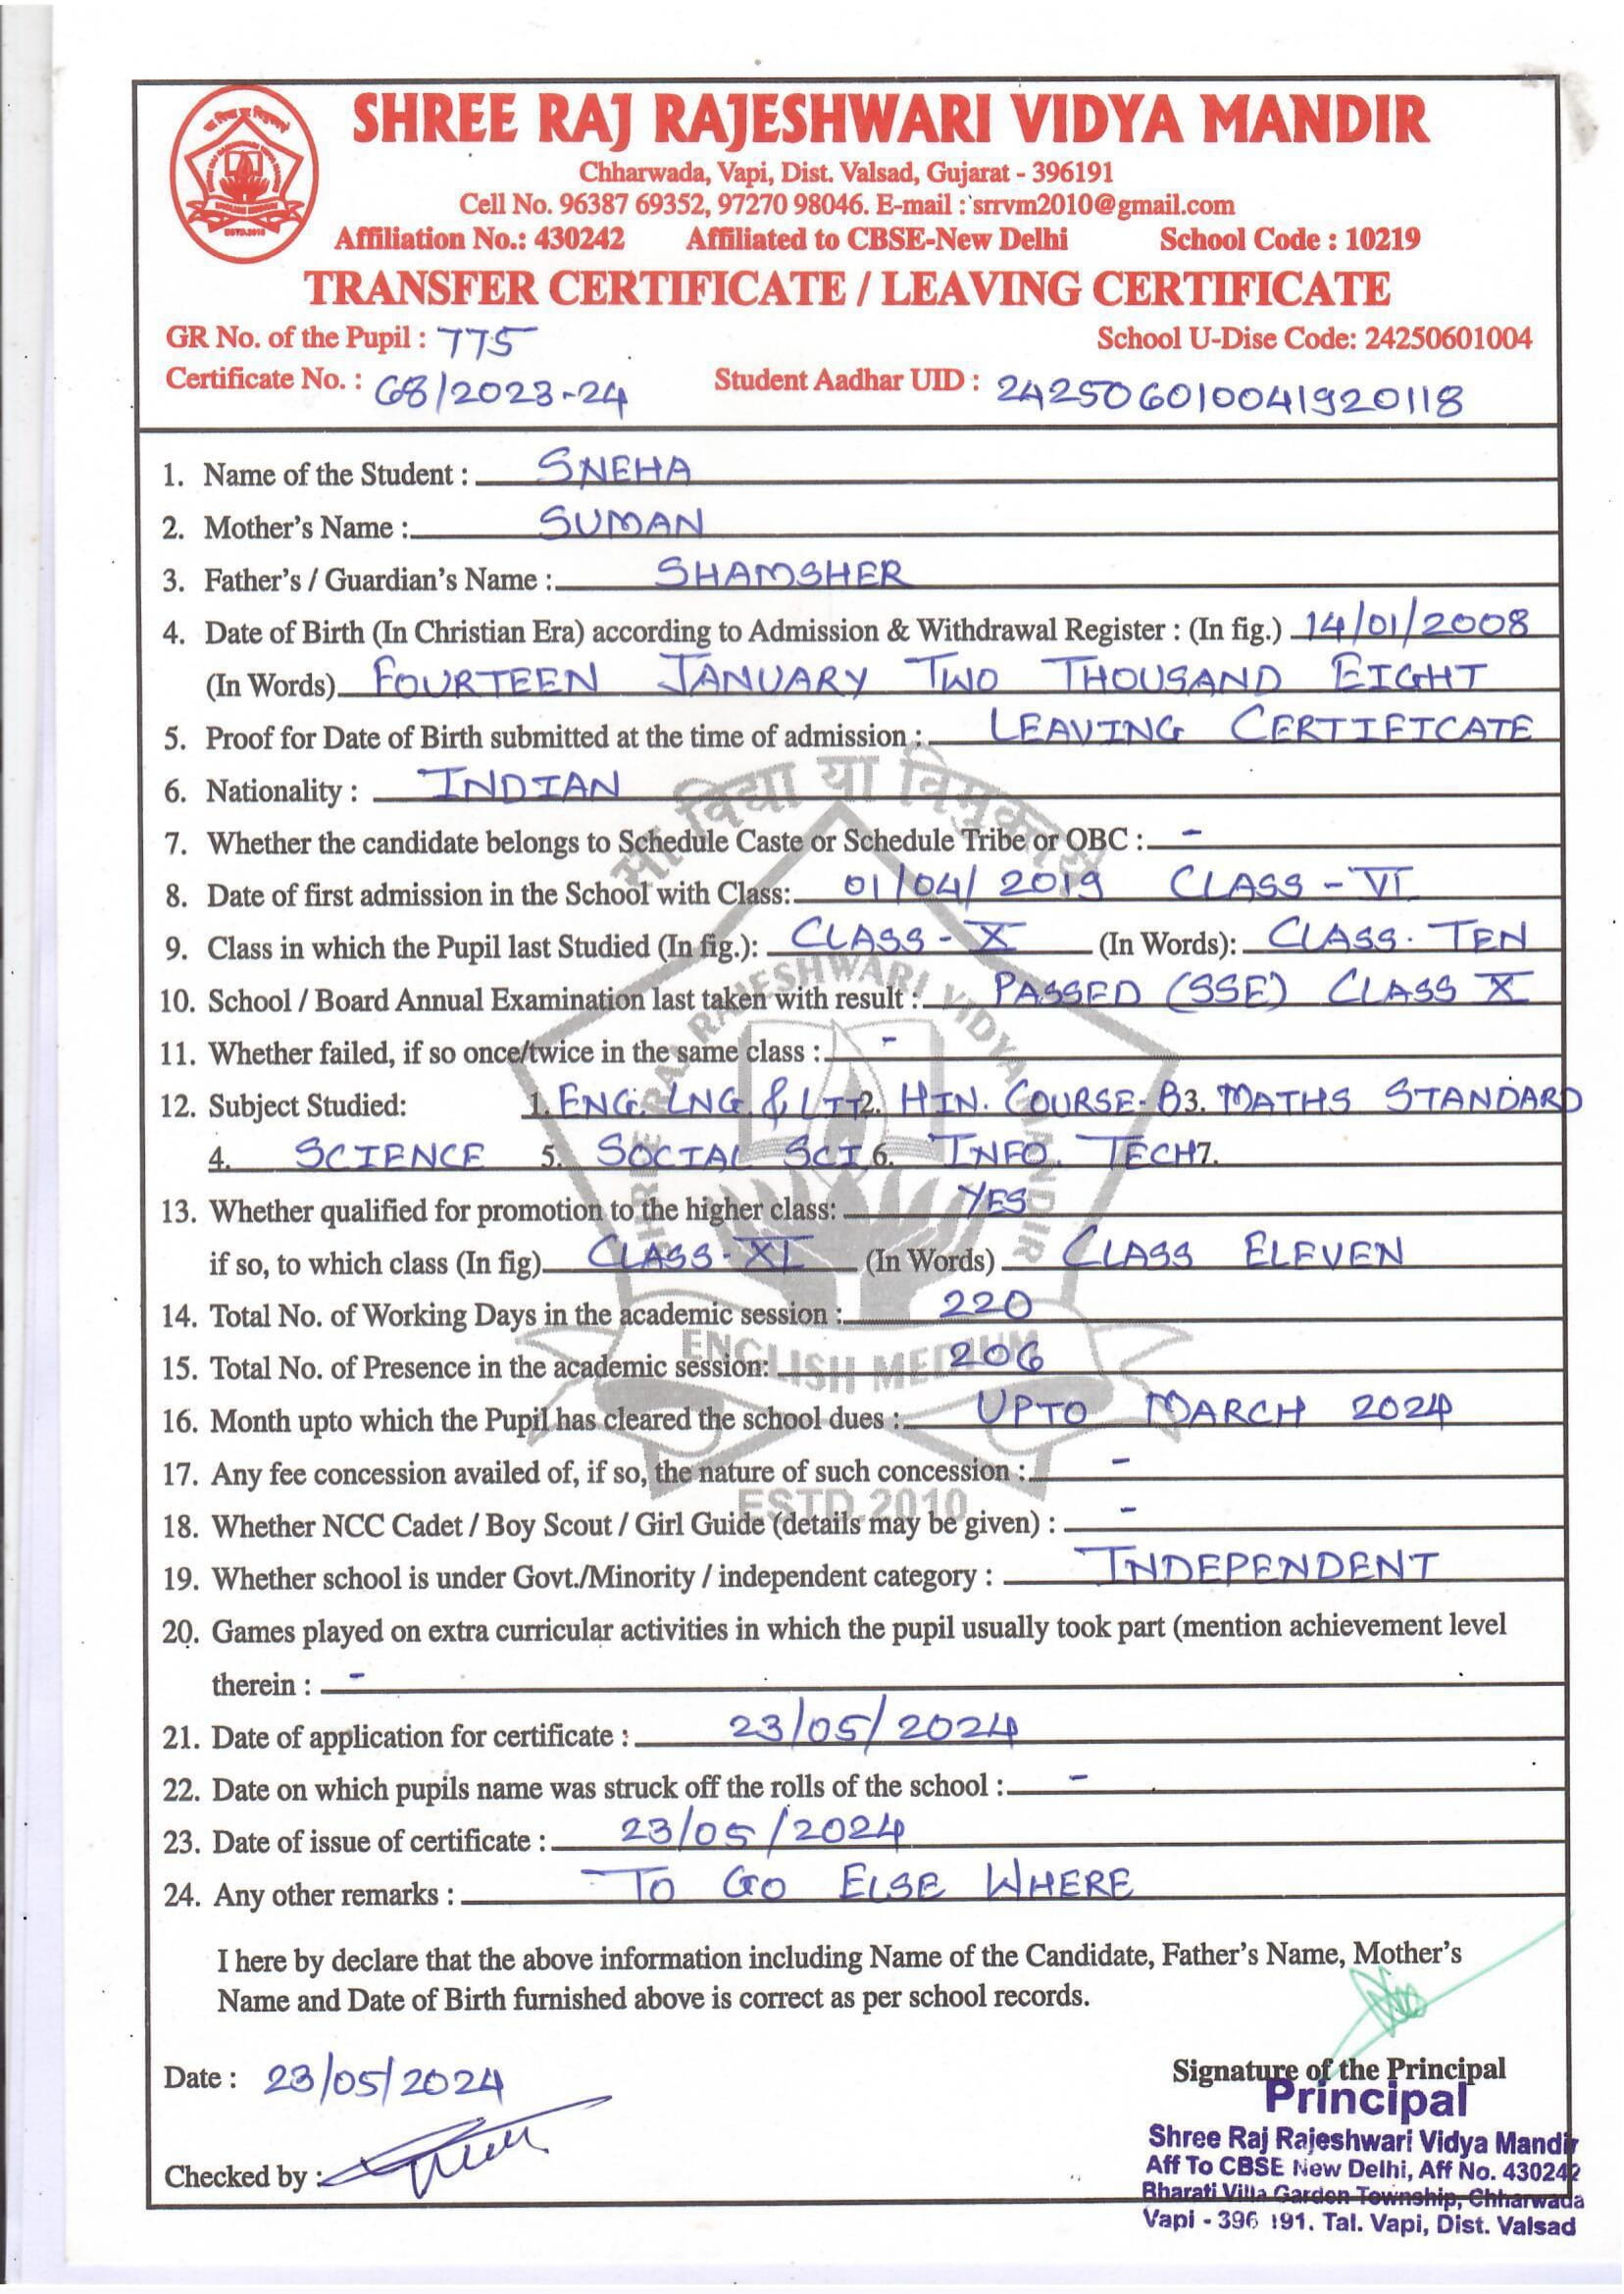 SHREE RAJ RAJESHWARI VIDYA MANDIR
Chharwada, Vapi, Dist. Valsad, Gujarat - 396191
Cell No. 96387 69352, 97270 98046. E-mail : srrvm2010@gmail.com
Affiliation No.: 430242 Affiliated to CBSE-New Delhi School Code : 10219
TRANSFER CERTIFICATE / LEAVING CERTIFICATE
GR No. of the Pupil : 775 School U-Dise Code: 24250601004
Certificate No. : 68/2023-24 Student Aadhar UID : 242506010041920118
1. Name of the Student : SNEHA
2. Mother's Name : SUMAN
3. Father's / Guardian's Name : SHAMSHER
4. Date of Birth (In Christian Era) according to Admission & Withdrawal Register : (In fig.) 14/01/2008
(In Words) FOURTEEN JANUARY TWO THOUSAND EIGHT
5. Proof for Date of Birth submitted at the time of admission : LEAVING CERTIFICATE
6. Nationality : INDIAN
7. Whether the candidate belongs to Schedule Caste or Schedule Tribe or OBC : -
8. Date of first admission in the School with Class: 01/04/2019 CLASS - VI
9. Class in which the Pupil last Studied (In fig.): CLASS - X (In Words): CLASS. TEN
10. School / Board Annual Examination last taken with result : PASSED (SSE) CLASS X
11. Whether failed, if so once/twice in the same class : -
12. Subject Studied: 1. ENG. LNG & LIT 2. HIN. COURSE-B 3. MATHS STANDARD
4. SCIENCE 5. SOCIAL SCI 6. INFO. TECH 7.
13. Whether qualified for promotion to the higher class: YES
if so, to which class (In fig) CLASS-XI (In Words) CLASS ELEVEN
14. Total No. of Working Days in the academic session : 220
15. Total No. of Presence in the academic session: 206
16. Month upto which the Pupil has cleared the school dues : UPTO MARCH 2024
17. Any fee concession availed of, if so, the nature of such concession : -
18. Whether NCC Cadet / Boy Scout / Girl Guide (details may be given) : -
19. Whether school is under Govt./Minority / independent category : INDEPENDENT
20. Games played on extra curricular activities in which the pupil usually took part (mention achievement level
therein : -
21. Date of application for certificate : 23/05/2024
22. Date on which pupils name was struck off the rolls of the school : -
23. Date of issue of certificate : 23/05/2024
24. Any other remarks : TO GO ELSE WHERE
I here by declare that the above information including Name of the Candidate, Father's Name, Mother's
Name and Date of Birth furnished above is correct as per school records.
Date : 23/05/2024
Signature of the Principal
Principal
Shree Raj Rajeshwari Vidya Mandir
Aff To CBSE New Delhi, Aff No. 430242
Checked by :
Bharati Villa Garden Township, Chharwada
Vapi - 396 191. Tal. Vapi, Dist. Valsad
SHREE RAJ RAJESHWARI VIDYA MANDIR
ENGLISH MEDIUM
ESTD. 2010